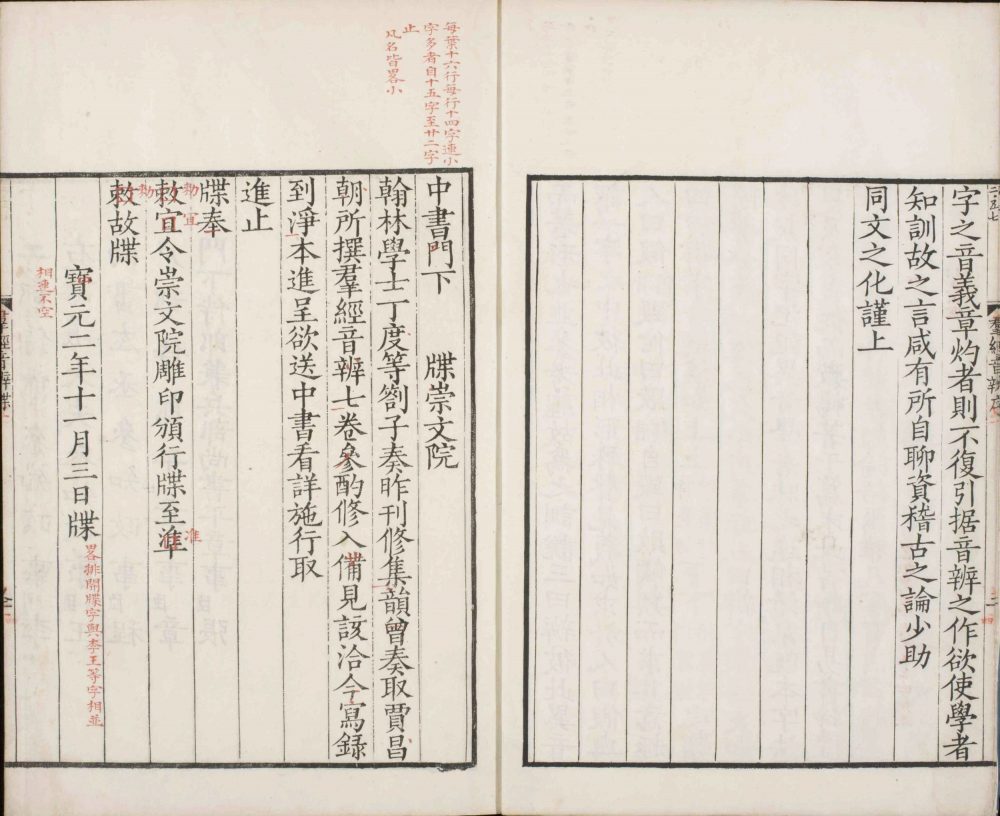 字之音義章灼者則不復引据音辨之作欲使學者
知訓故之言咸有所自聊資稽古之論少助
同文之化謹上
羣經音辨序
每葉十六行每行十四字連小
字多者自十五字至廿二字
止
凡名皆畧小
中書門下 牒崇文院
翰林學士丁度等劄子奏昨刊修集韻曾奏取賈昌
朝所撰羣經音辨七卷參酌修入備見該洽今寫錄
到淨本進呈欲送中書看詳施行取
進止
牒奉
敕宜令崇文院雕印頒行牒至準
勑
宜
准
敕故牒
勑
寶元二年十一月三日牒
相連不空
畧排開牒字與李王等字相並
羣經音辨牒